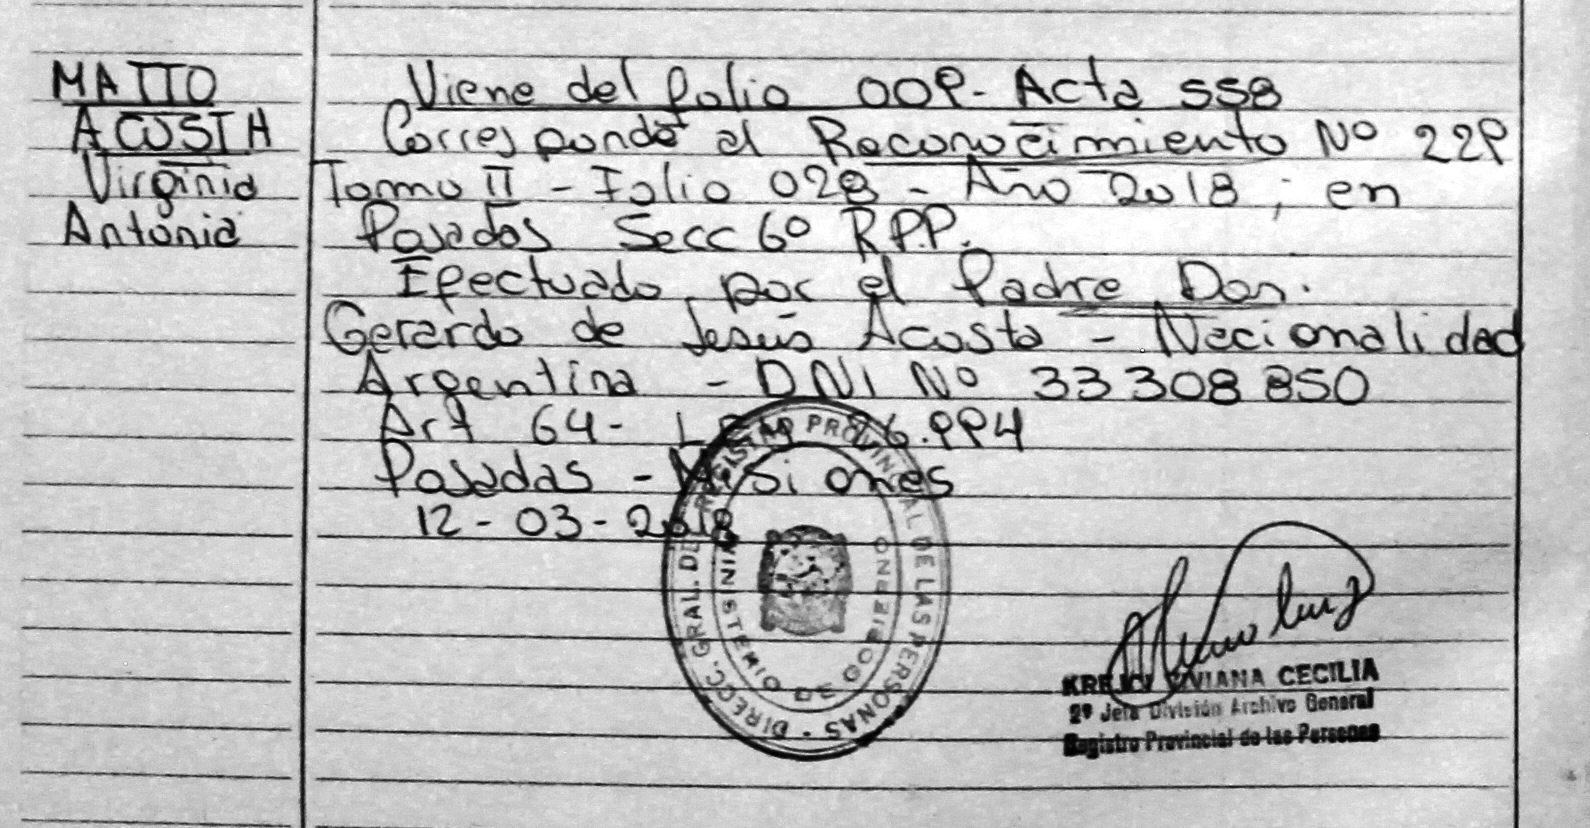 MATTO
ACOSTA
Virginia
Antonia
Viene del folio 009- Acta 558
Corresponde al Reconocimiento Nº 229
Tomo II - Folio 028 - Año 2018 ; en
Posadas Secc 6º R.P.P.
Efectuado por el Padre Don.
Gerardo de Jesús Acosta - Nacionalidad
Argentina - DNI Nº 33308850
Art 64- Ley 26.994
Posadas - Misiones
12-03-2018
DIRECC. GRAL. DE REGISTRO PROVINCIAL DE LAS PERSONAS
MINISTERIO DE GOBIERNO
KREJCI VIVIANA CECILIA
2º Jefa División Archivo General
Registro Provincial de las Personas